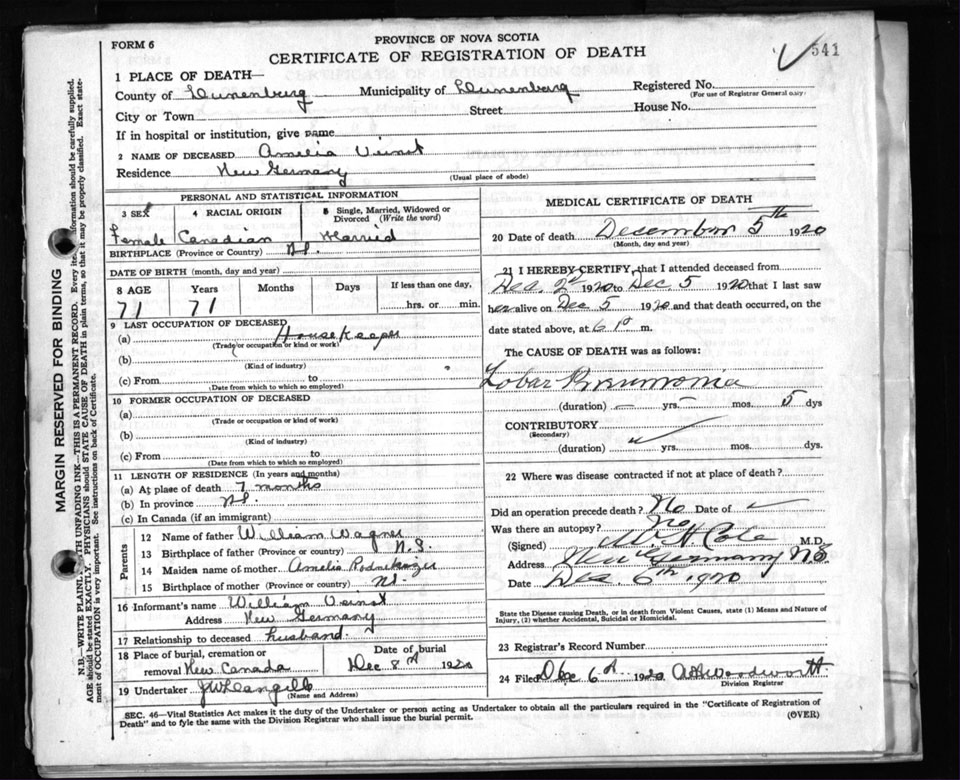 FORM 6
PROVINCE OF NOVA SCOTIA
CERTIFICATE OF REGISTRATION OF DEATH
541
1 PLACE OF DEATH—
County of Lunenberg Municipality of Lunenberg Registered No.
(For use of Registrar General only)
City or Town Street House No.
If in hospital or institution, give name
2 NAME OF DECEASED Amelia Veinot
Residence New Germany
(Usual place of abode)
PERSONAL AND STATISTICAL INFORMATION
3 SEX 4 RACIAL ORIGIN 5 Single, Married, Widowed or Divorced (Write the word)
Female Canadian Married
BIRTHPLACE (Province or Country) N.S.
DATE OF BIRTH (month, day and year)
8 AGE Years Months Days If less than one day,
71 71 hrs. or min.
9 LAST OCCUPATION OF DECEASED
(a) Housekeeper
(Trade or occupation or kind or work)
(b)
(Kind of industry)
(c) From to
(Date from which to which so employed)
10 FORMER OCCUPATION OF DECEASED
(a)
(Trade or occupation or kind of work)
(b)
(Kind of industry)
(c) From to
(Date from which to which so employed)
11 LENGTH OF RESIDENCE (In years and months)
(a) At place of death 7 months
(b) In province N.S.
(c) In Canada (if an immigrant)
Parents
12 Name of father William Wagner
13 Birthplace of father (Province or country) N.S.
14 Maiden name of mother Amelia
15 Birthplace of mother (Province or country) N.S.
16 Informant's name William Veinot
Address New Germany
17 Relationship to deceased husband
18 Place of burial, cremation or removal New Canada
Date of burial Dec 8th 1920
19 Undertaker
(Name and Address)
MEDICAL CERTIFICATE OF DEATH
20 Date of death Desember 5th 1920
(Month, day and year)
21 I HEREBY CERTIFY, that I attended deceased from
Dec. 2nd 1920 to Dec. 5 1920 that I last saw
her alive on Dec 5 1920 and that death occurred, on the
date stated above, at 6 P m.
The CAUSE OF DEATH was as follows:
Lobar Pneumonia
(duration) — yrs — mos. 5 dys
CONTRIBUTORY
(Secondary)
(duration) yrs. mos. dys.
22 Where was disease contracted if not at place of death?
Did an operation precede death? No Date of
Was there an autopsy? No
(Signed) W. H. Cole M.D.
Address New Germany N.S.
Date Dec. 6th 1920
State the Disease causing Death, or in death from Violent Causes, state (1) Means and Nature of
Injury, (2) whether Accidental, Suicidal or Homicidal.
23 Registrar's Record Number
24 Filed Dec 6th 1920 Woodworth
Division Registrar
SEC. 46—Vital Statistics Act makes it the duty of the Undertaker or person acting as Undertaker to obtain all the particulars required in the "Certificate of Registration of
Death" and to fyle the same with the Division Registrar who shall issue the burial permit.
(OVER)
MARGIN RESERVED FOR BINDING
N.B.—WRITE PLAINLY, WITH UNFADING INK—THIS IS A PERMANENT RECORD. Every item of information should be carefully supplied.
AGE should be stated EXACTLY. PHYSICIANS should STATE CAUSE OF DEATH in plain terms, so that it may be properly classified. Exact state-
ment of OCCUPATION is very important. See instructions on back of Certificate.